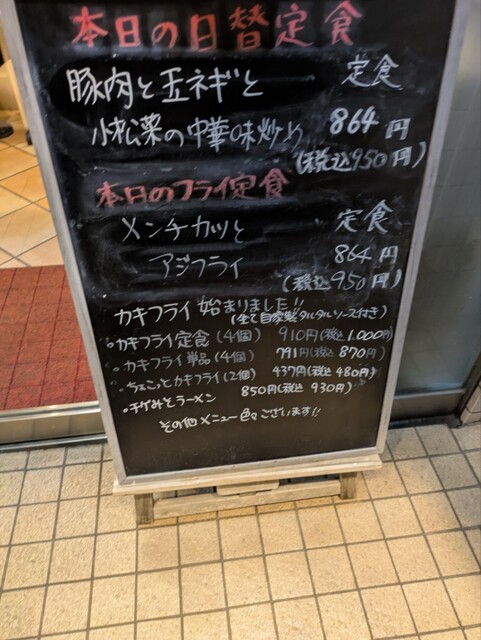 本日の日替定食
豚肉と玉ネギと 定食
小松菜の中華味炒め 864円
(税込950円)
本日のフライ定食
メンチカツと 定食
アジフライ 864円
(税込950円)
カキフライ始まりました!!
(全て自家製タルタルソース付き)
・カキフライ定食(4個) 910円(税込1.000円)
・カキフライ単品(4個) 791円(税込870円)
・ちょこっとカキフライ(2個) 437円(税込480円)
・チゲみそラーメン 850円(税込930円)
その他メニュー色々ございます!!